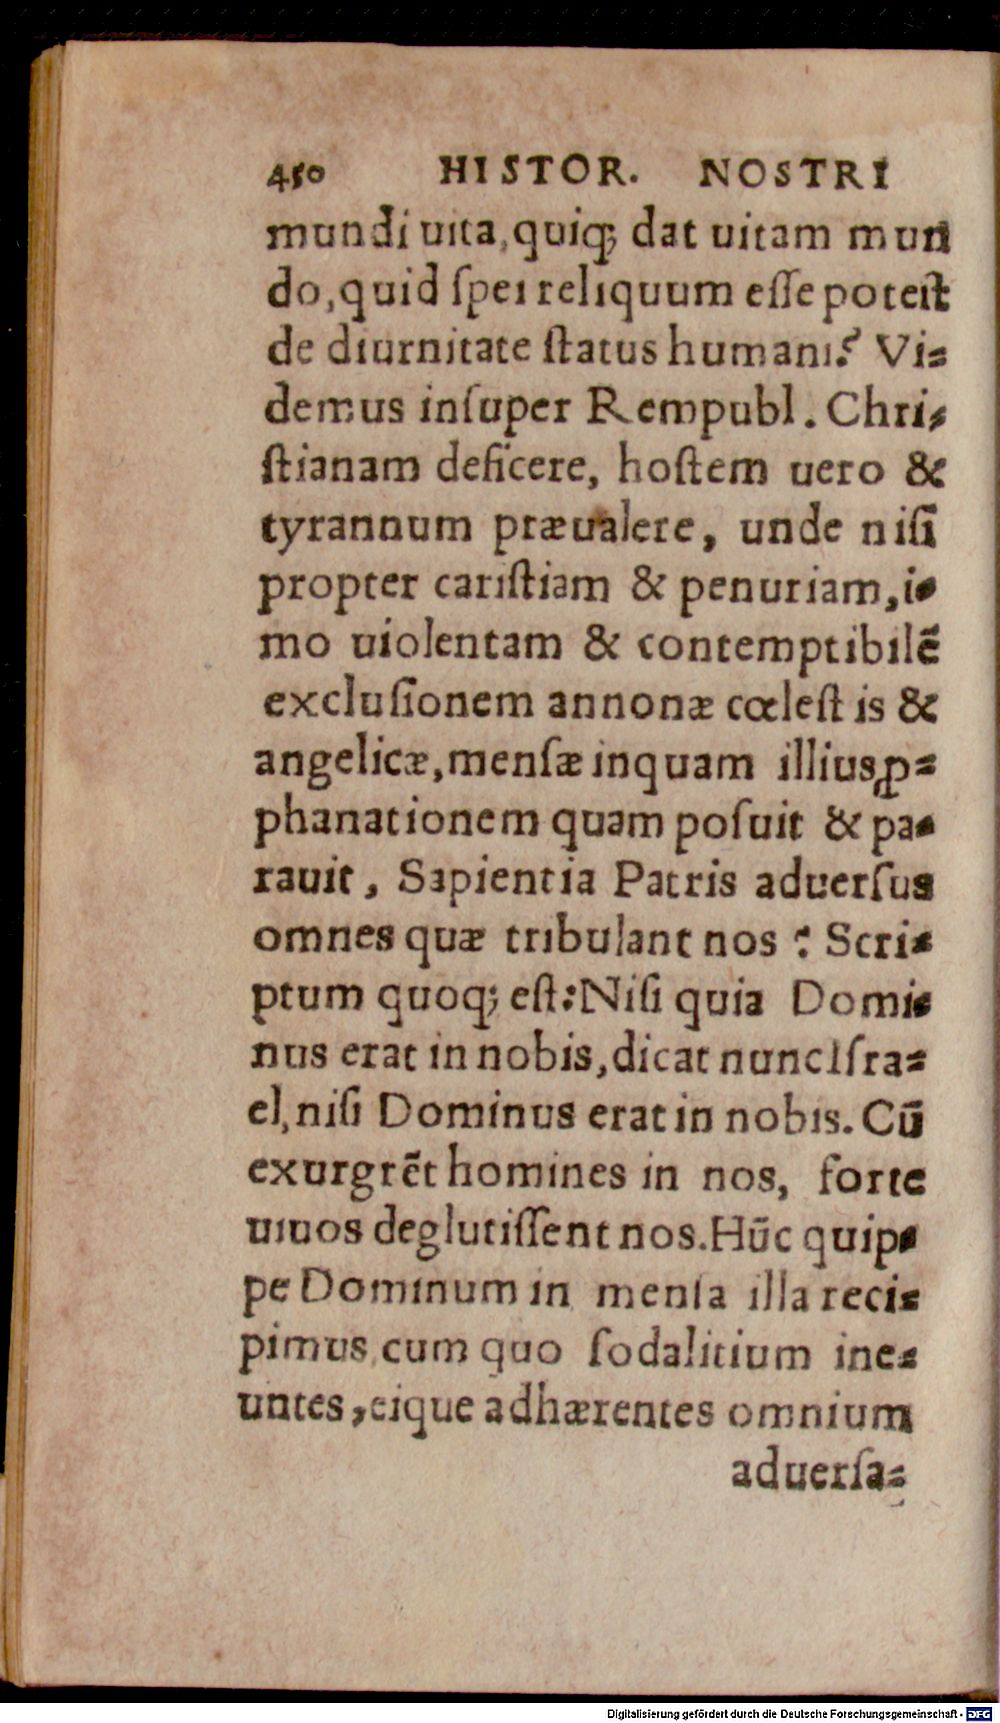 450 HISTOR. NOSTRI
mundi uita, quiq; dat uitam mun
do, quid ſpei reliquum eſſe poteſt
de diurnitate ſtatus humani? Vi-
demus inſuper Rempubl. Chri-
ſtianam deficere, hoſtem uero &
tyrannum præualere, unde niſi
propter cariſtiam & penuriam, i-
mo uiolentam & contemptibilẽ
excluſionem annonæ cœleſtis &
angelicæ, menſæ inquam illius ꝓ-
phanationem quam poſuit & pa-
rauit, Sapientia Patris aduerſus
omnes quæ tribulant nos? Scri-
ptum quoq; eſt: Niſi quia Domi-
nus erat in nobis, dicat nunc Iſra-
el, niſi Dominus erat in nobis. Cũ
exurgrẽt homines in nos, forte
uiuos deglutiſſent nos. Hũc quip-
pe Dominum in menſa illa reci-
pimus, cum quo ſodalitium ine-
untes, eique adhærentes omnium
aduerſa-
Digitalisierung gefördert durch die Deutsche Forschungsgemeinschaft - DFG